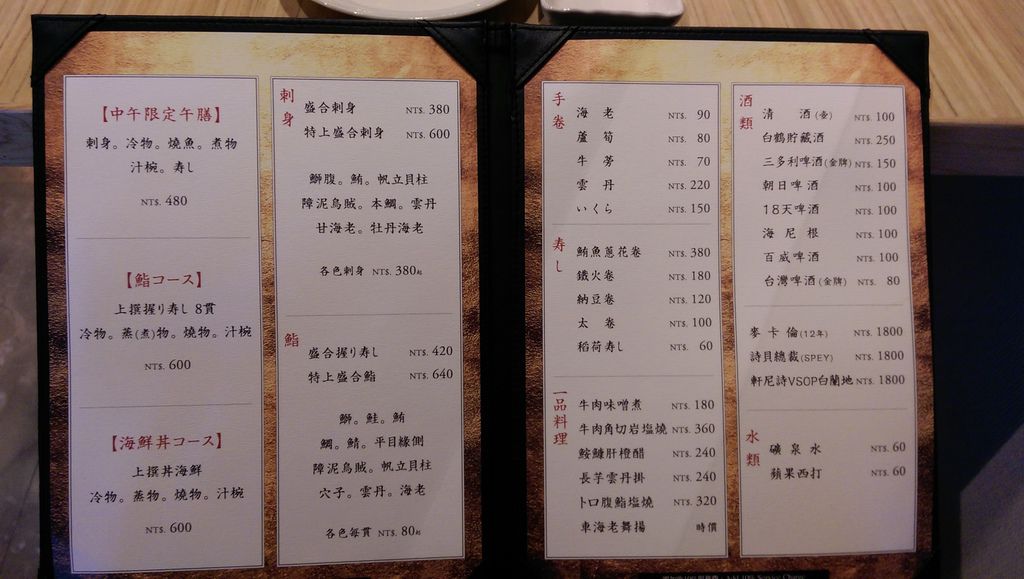 【中午限定午膳】
刺身。冷物。燒魚。煮物
汁椀。寿し
NT$. 480
【鮨コース】
上撰握り寿し 8貫
冷物。蒸(煮)物。燒物。汁椀
NT$. 600
【海鮮丼コース】
上撰丼海鮮
冷物。蒸物。燒物。汁椀
NT$. 600
刺身
盛合刺身 NT$. 380
特上盛合刺身 NT$. 600
鰤腹。鮪。帆立貝柱
障泥烏賊。本鯛。雲丹
甘海老。牡丹海老
各色刺身 NT$. 380起
鮨
盛合握り寿し NT$. 420
特上盛合鮨 NT$. 640
鰤。鮭。鮪
鯛。鯖。平目緣側
障泥烏賊。帆立貝柱
穴子。雲丹。海老
各色每貫 NT$. 80起
手卷
海老 NT$. 90
蘆筍 NT$. 80
牛蒡 NT$. 70
雲丹 NT$. 220
いくら NT$. 150
寿し
鮪魚蔥花卷 NT$. 380
鐵火卷 NT$. 180
納豆卷 NT$. 120
太卷 NT$. 100
稻荷寿し NT$. 60
一品料理
牛肉味噌煮 NT$. 180
牛肉角切岩塩燒 NT$. 360
鮟鱇肝橙醋 NT$. 240
長芋雲丹掛 NT$. 240
トロ腹鮨塩燒 NT$. 320
車海老舞揚 時價
酒類
清酒(壺) NT$. 100
白鶴貯藏酒 NT$. 250
三多利啤酒(金牌) NT$. 150
朝日啤酒 NT$. 100
18天啤酒 NT$. 100
海尼根 NT$. 100
百威啤酒 NT$. 100
台灣啤酒(金牌) NT$. 80
麥卡倫(12年) NT$. 1800
詩貝總裁(SPEY) NT$. 1800
軒尼詩VSOP白蘭地 NT$. 1800
水類
礦泉水 NT$. 60
蘋果西打 NT$. 60